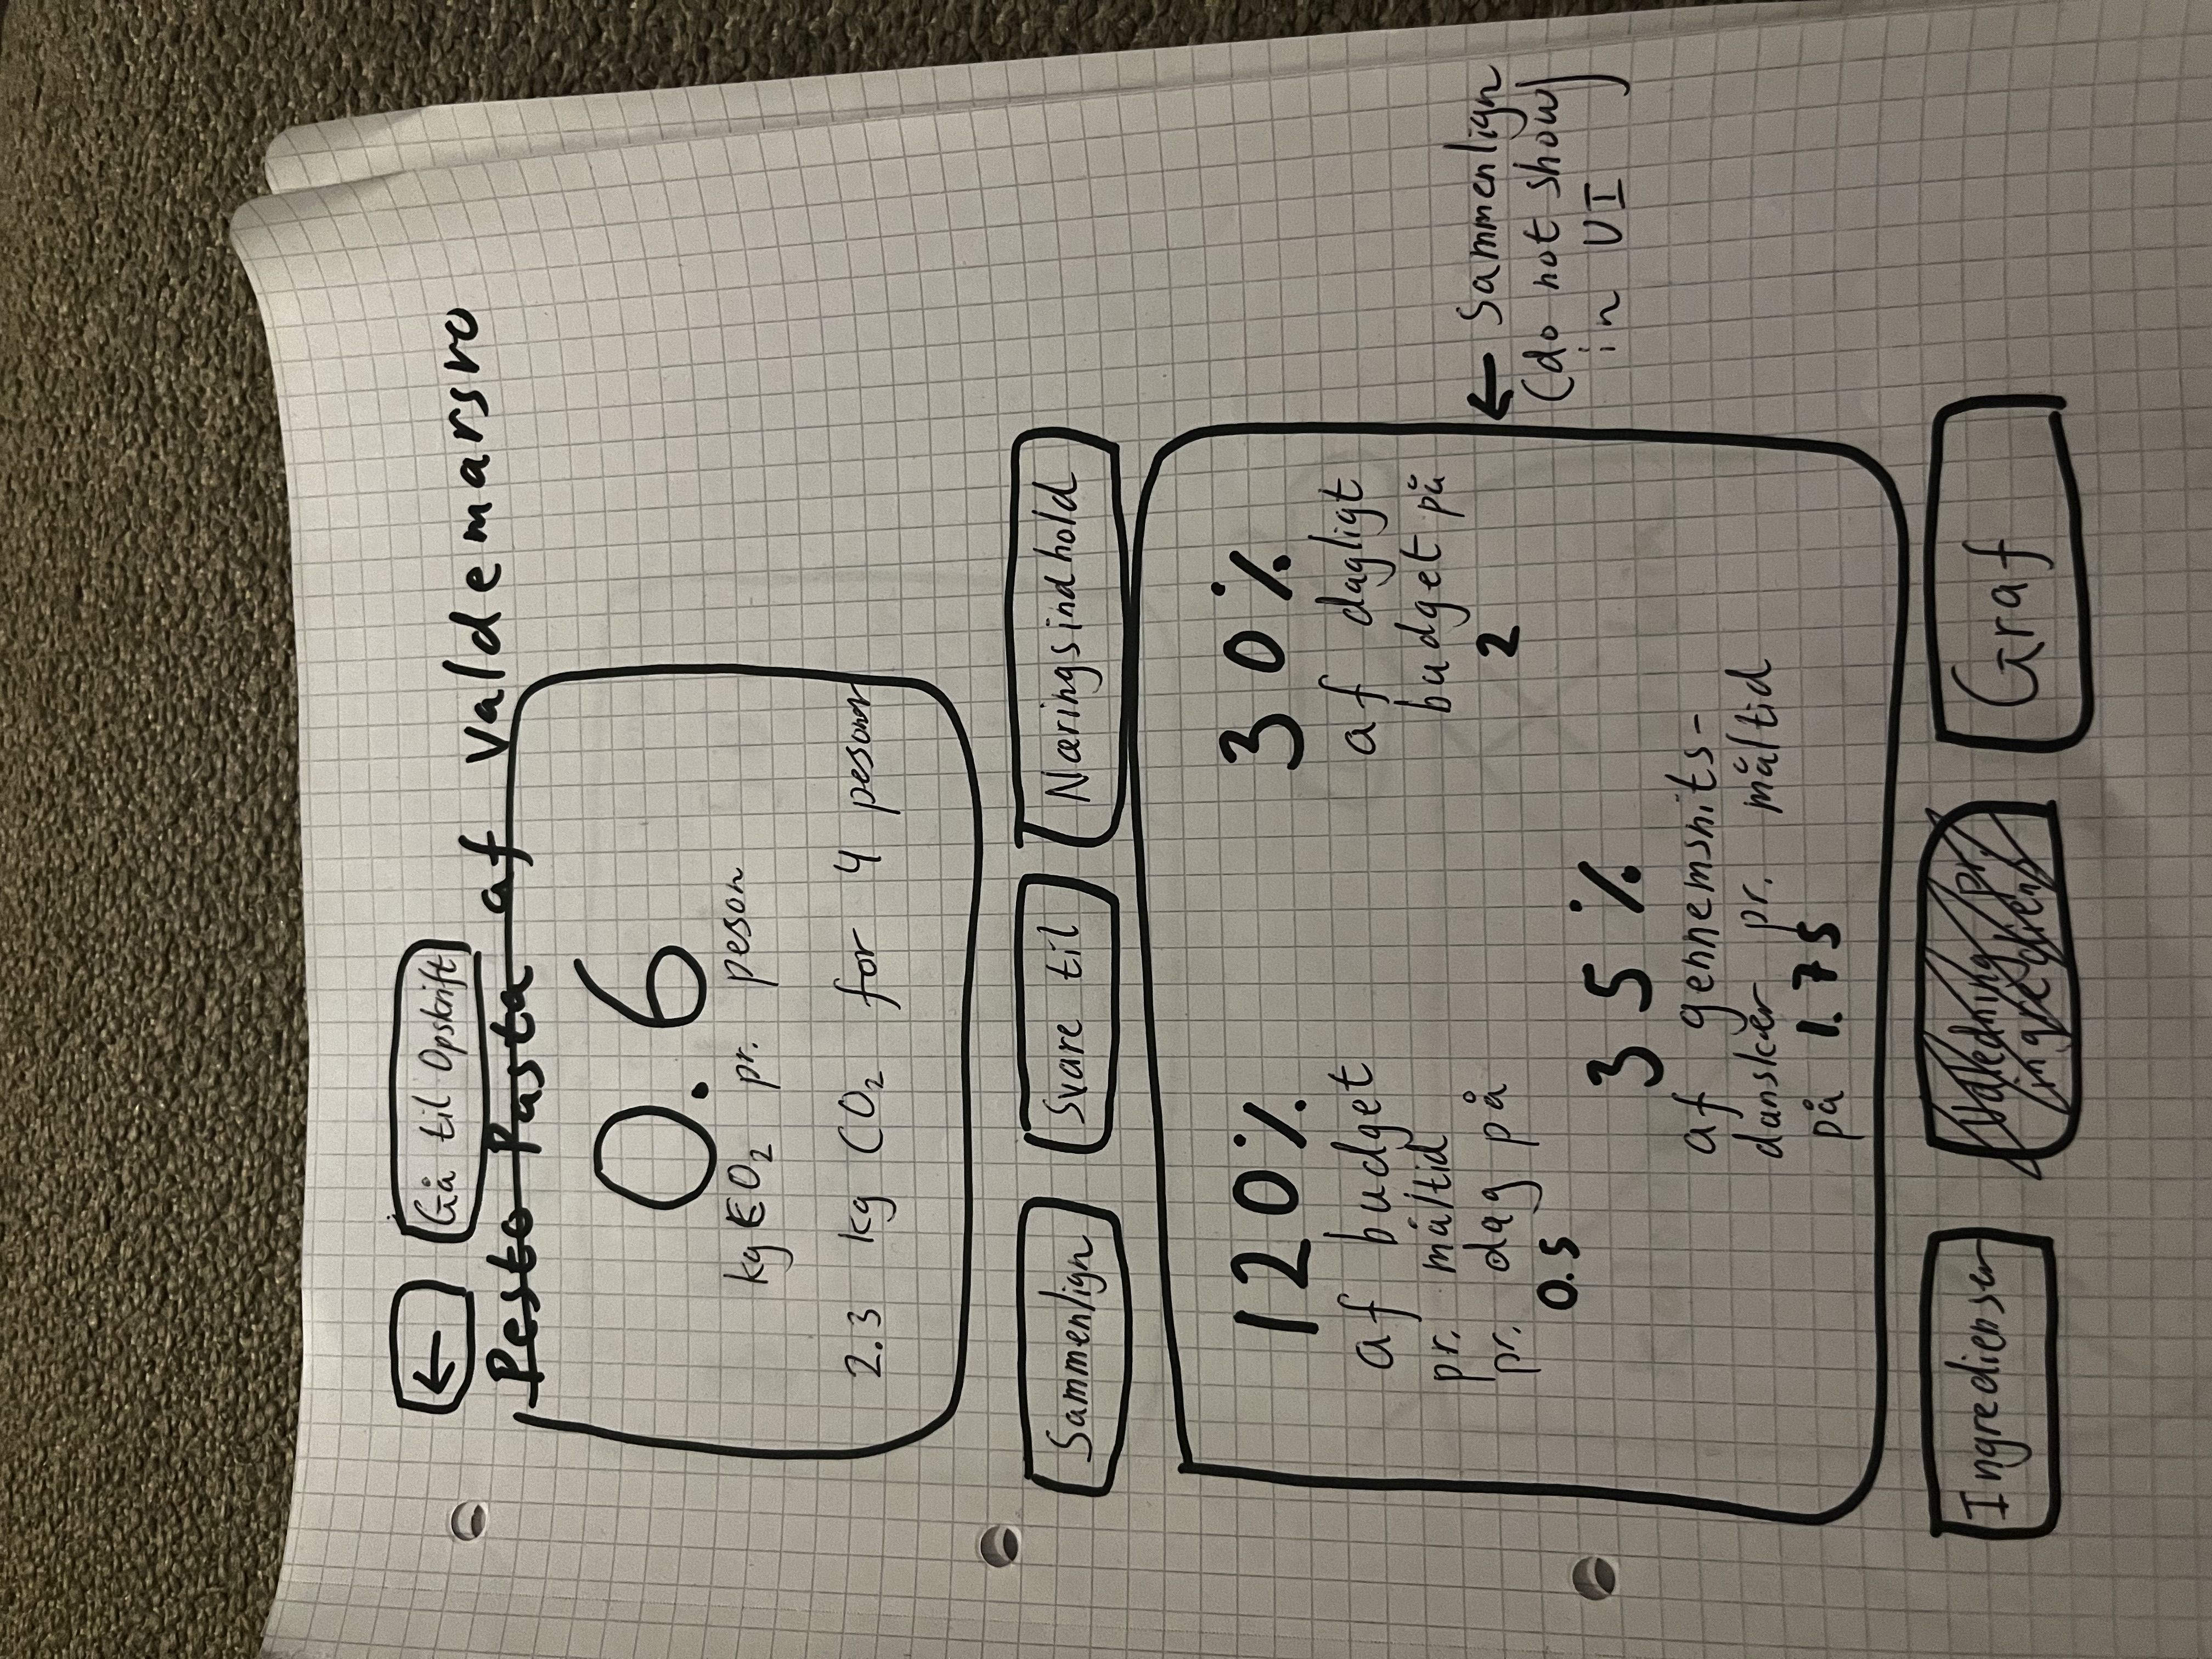 ←
Gå til Opskrift
Pesto Pasta af Valdemarsro
0.6
kg CO₂ pr. peson
2.3 kg CO₂ for 4 pesoner
Sammenlign
Svare til
Næringsindhold
120%
af budget
pr. måltid
pr. dag på
0.5
30%
af dagligt
budget på
2
← Sammenlign
(do not show)
in UI
35%
af gennemsnits-
dansker pr. måltid
på 1.75
Ingredienser
pr.
ingrediens
Graf